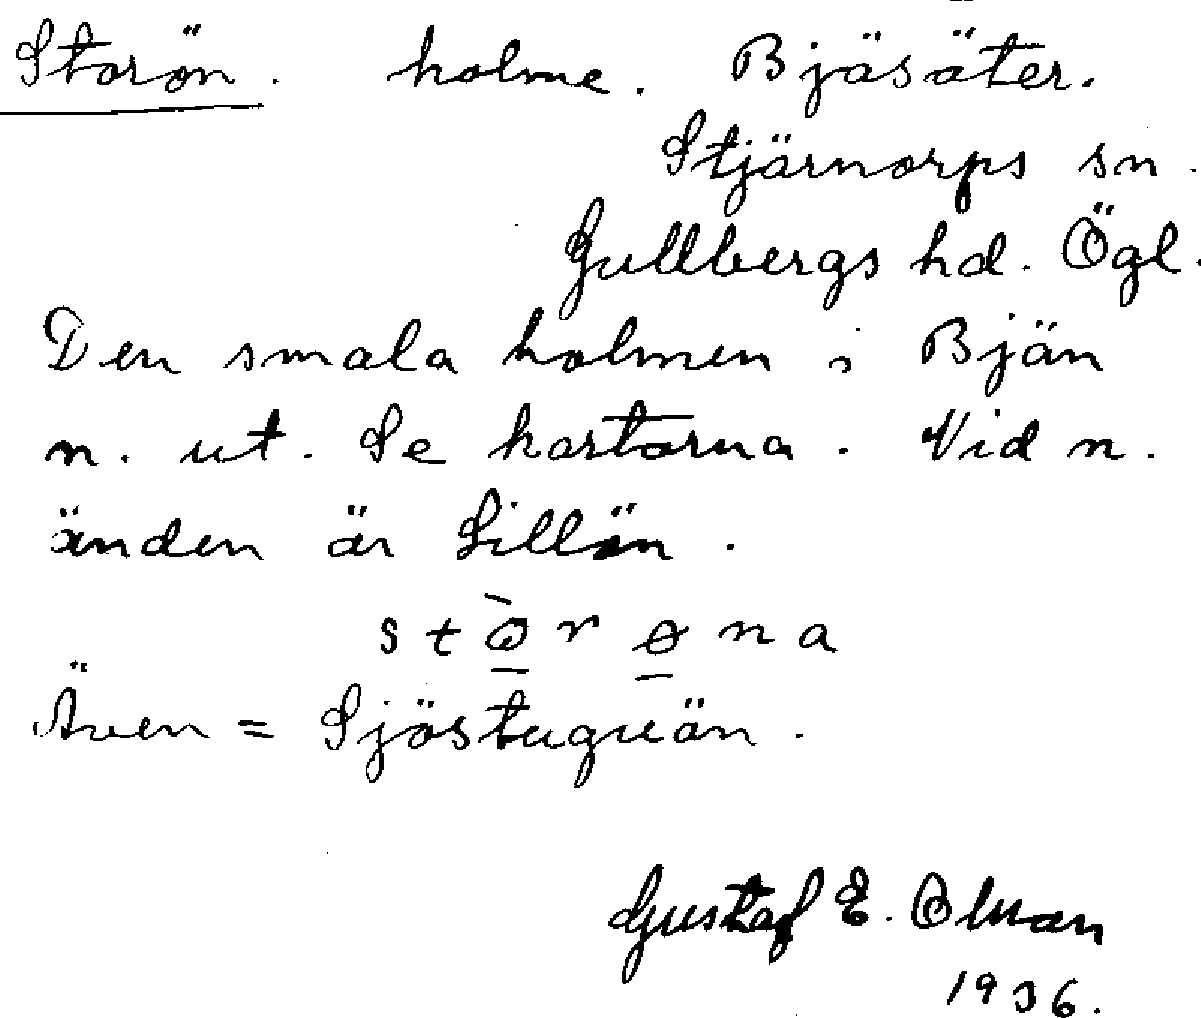 Storön. holme. Bjäsäter.
Stjärnorps sn.
Gullbergs hd. Ögl.
Den smala holmen i Bjän
n. ut. Se kartorna. Vid n.
änden är Lillön.
stò̱rɵ̱na
Även = Sjöstuguön.
Gustaf E. Olman
1936.